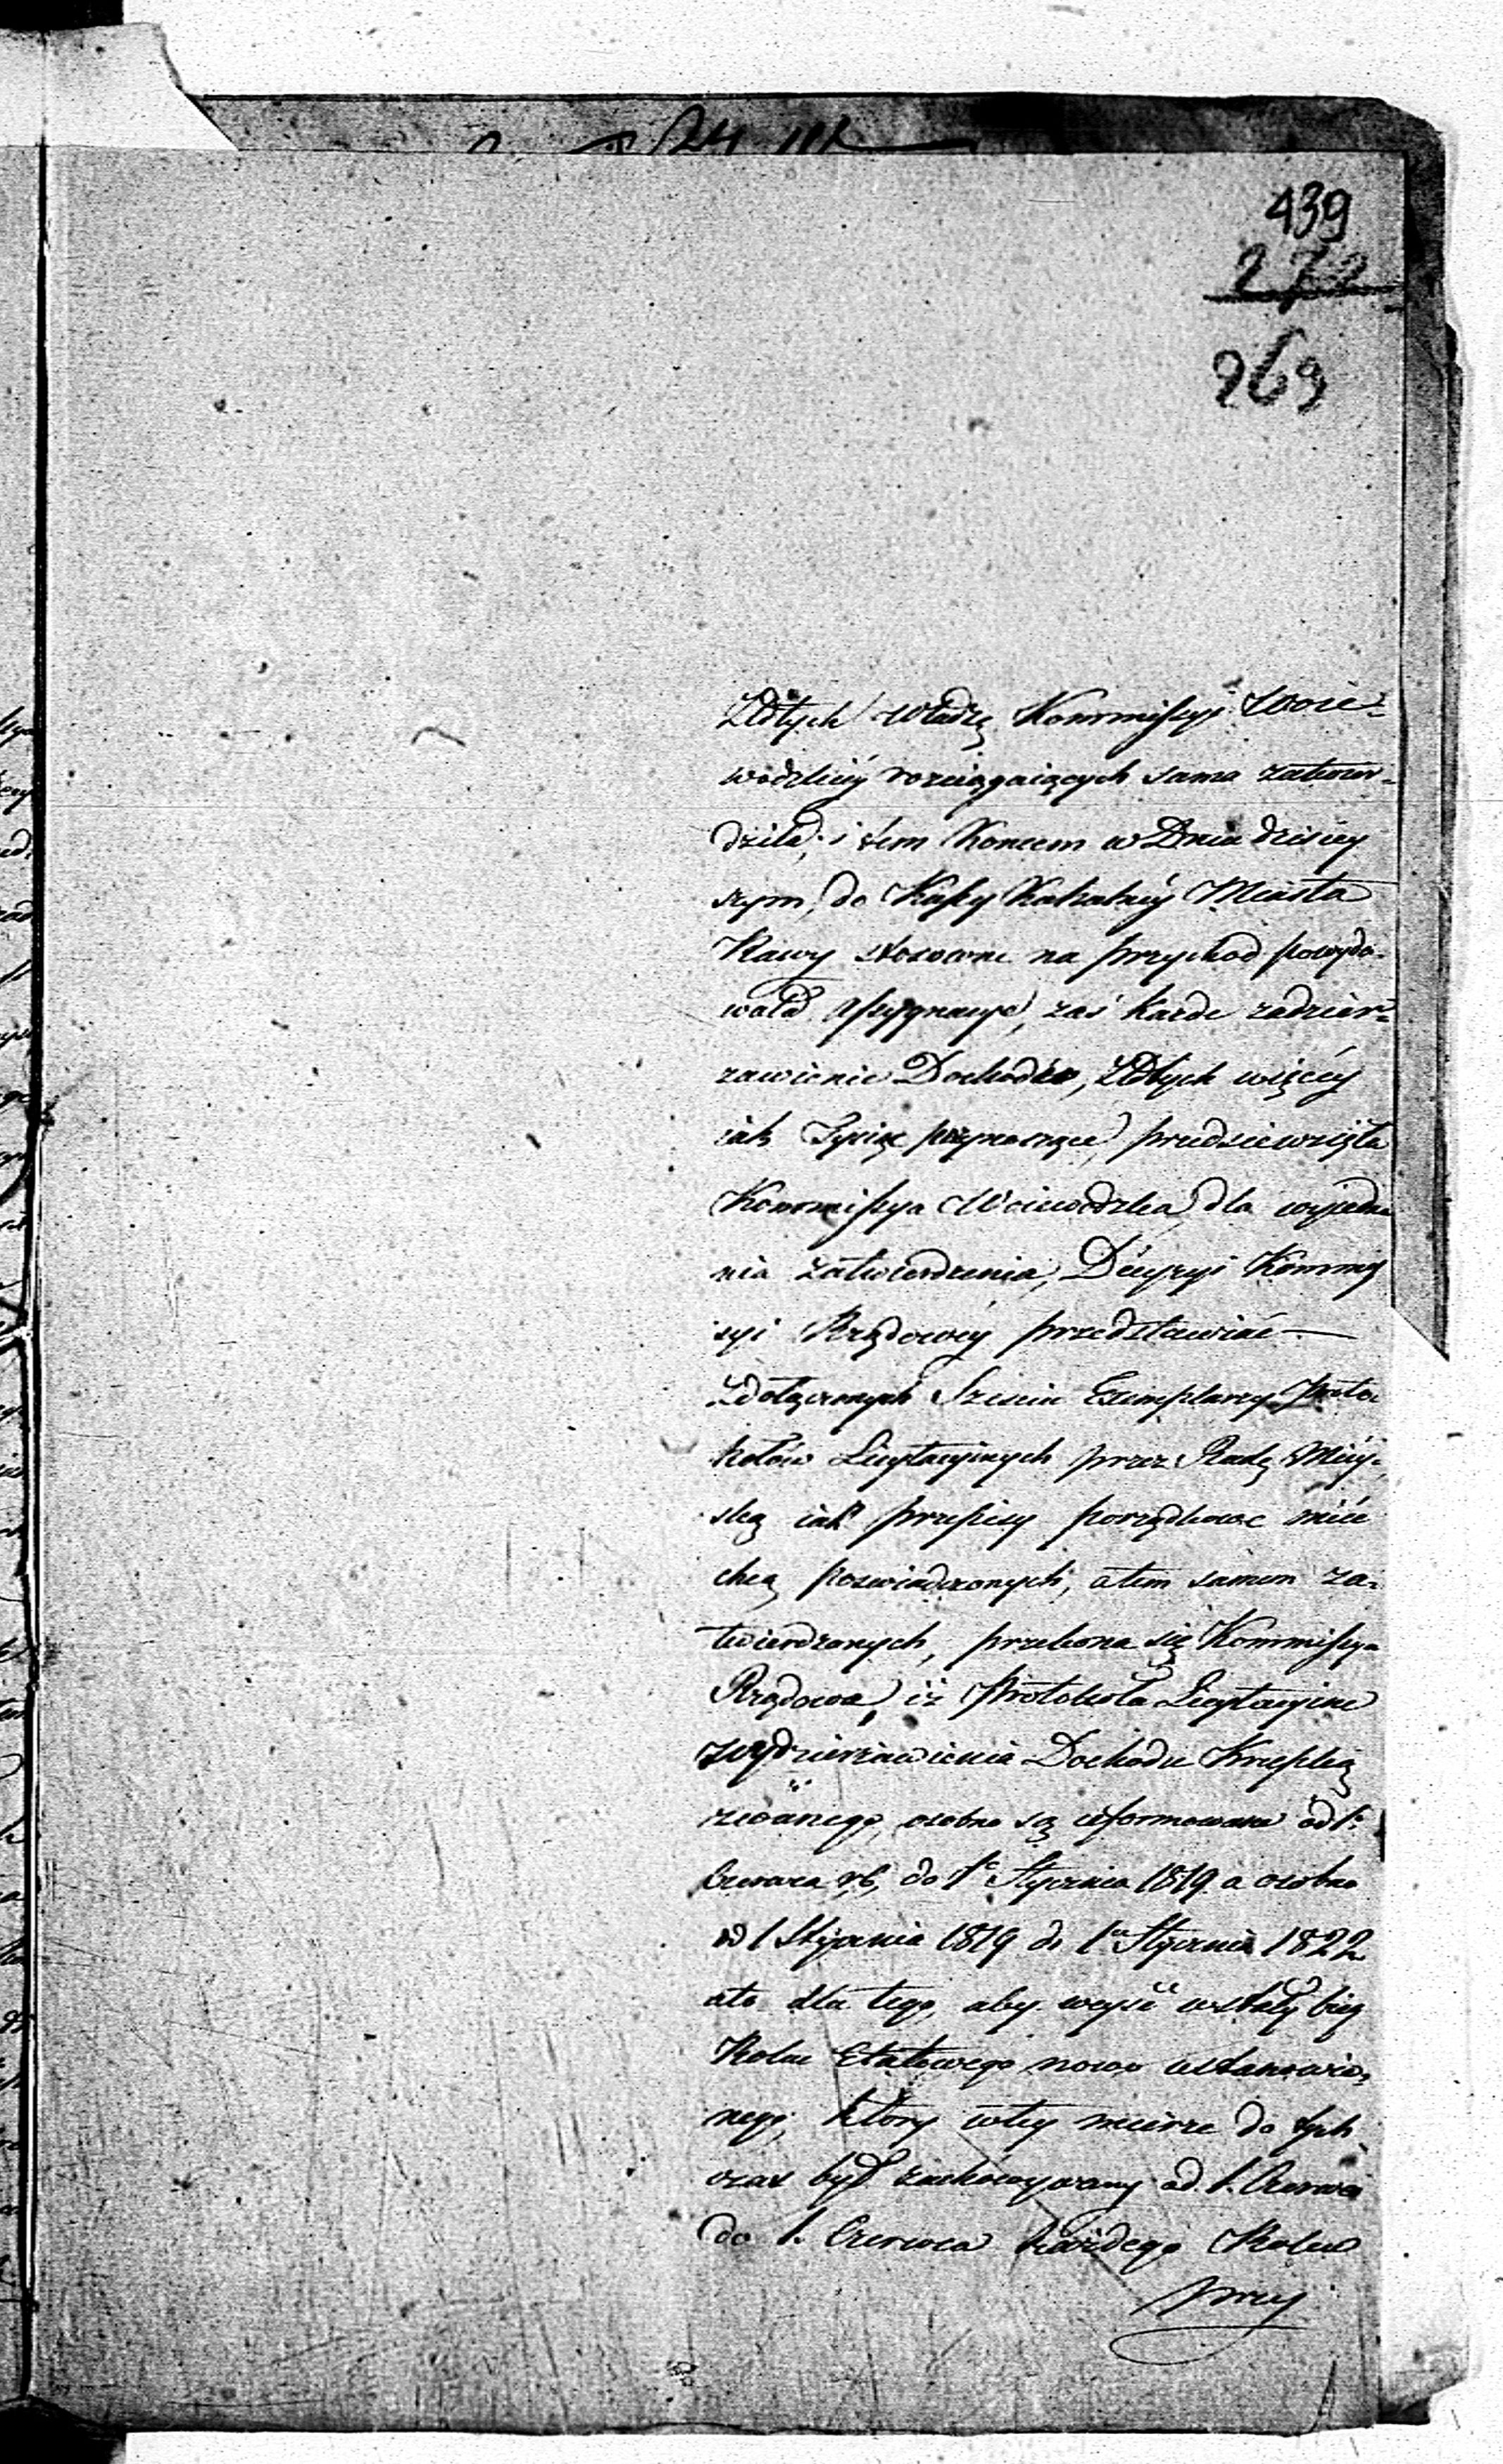 439
272
269
Złotych władzę Kommissyi Woie-
wódzkiéy rozciągaiących sama zatwier-
dziła, i tem Końcem w Dniu dzisiéy
szym, do Kassy Kahalnéy Miasta
Rawy stosowne na przychod powydo-
wała assygnacye, zaś każde zadzier-
zawienie Dochodów, Złotych więcéy
iak Tysiąc przynoszące, przedsiewzięła
Kommissya Woiewódzka, dla wyiedna
nia zatwierdzenia, Decyzyi Kommis
syi Rządowéy przedstawiać —
Z dołączonych Sześciu Exemplarzy Proto
kołów Licytacyinych przez Radę Miéy-
ską iak przepisy porządkowe mieć
chcą poswiadczonych, a tem samem za-
twierdzonych, przekona się Kommissya
Rządowa, iż Protokoła Licytacyine
wydzierżawienia Dochodu Krupką
zwanego, osobno są uformowane od 1.
Czerwca rb, do 1o Stycznia 1819 a osobno
od 1 Stycznia 1819 do 1o Stycznia 1822
a to dla tego, aby weyść w stały bieg
Roku Etatowego nowo ustanowio-
nego, który w tey mierze do tych
czas był zachowywany od 1. Czerwca
do 1. Czerwca każdego Roku
przy